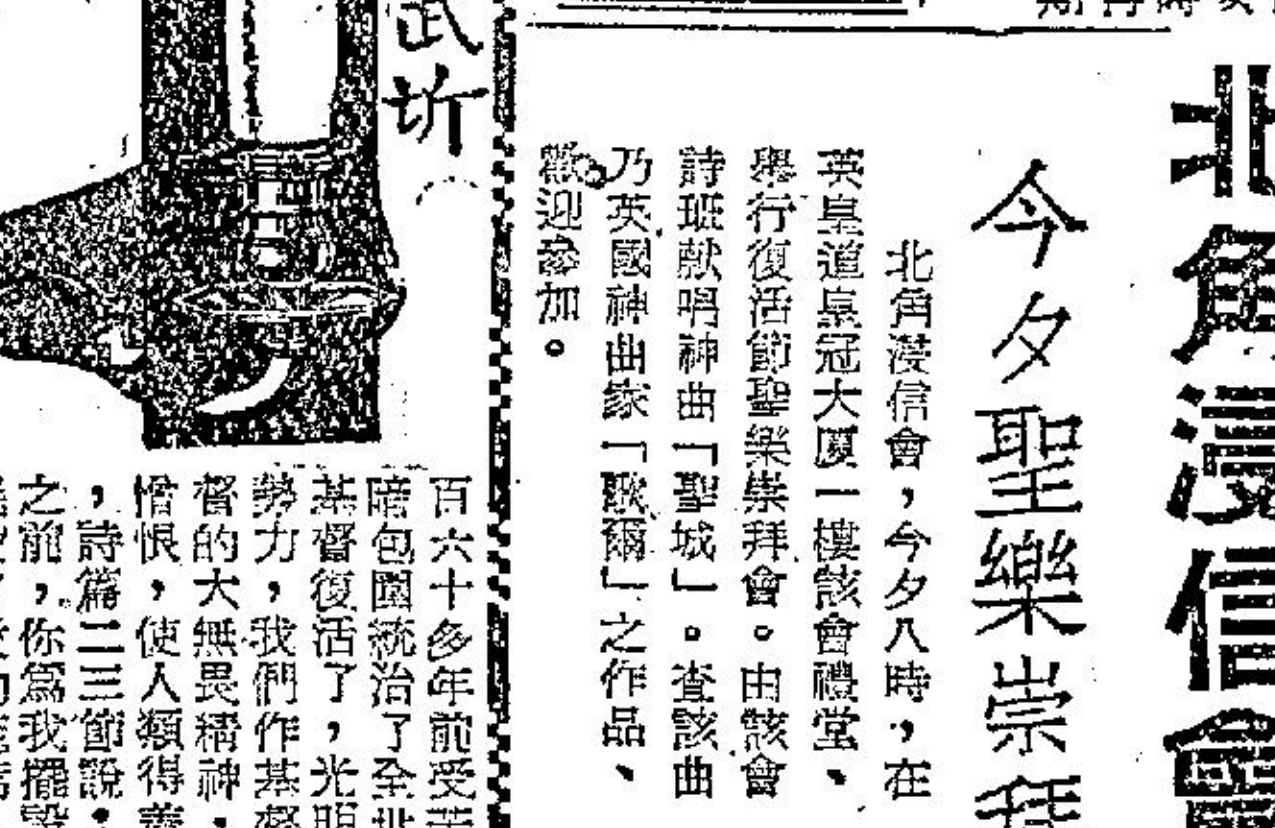 北角浸信會
今夕聖樂崇拜
北角浸信會，今夕八時，在
英皇道皇冠大厦一樓該會禮堂、
舉行復活節聖樂崇拜會。由該會
詩班献唱神曲「聖城」。查該曲
乃英國神曲家「歌爾」之作品、
歡迎參加。
武圻
百六十多年前受
暗包圍統治了全世
基督復活了，光明
勢力，我們作基督
督的大無畏精神，
憎恨，使人類得
，詩篇二三節說：
之前，你爲我擺設